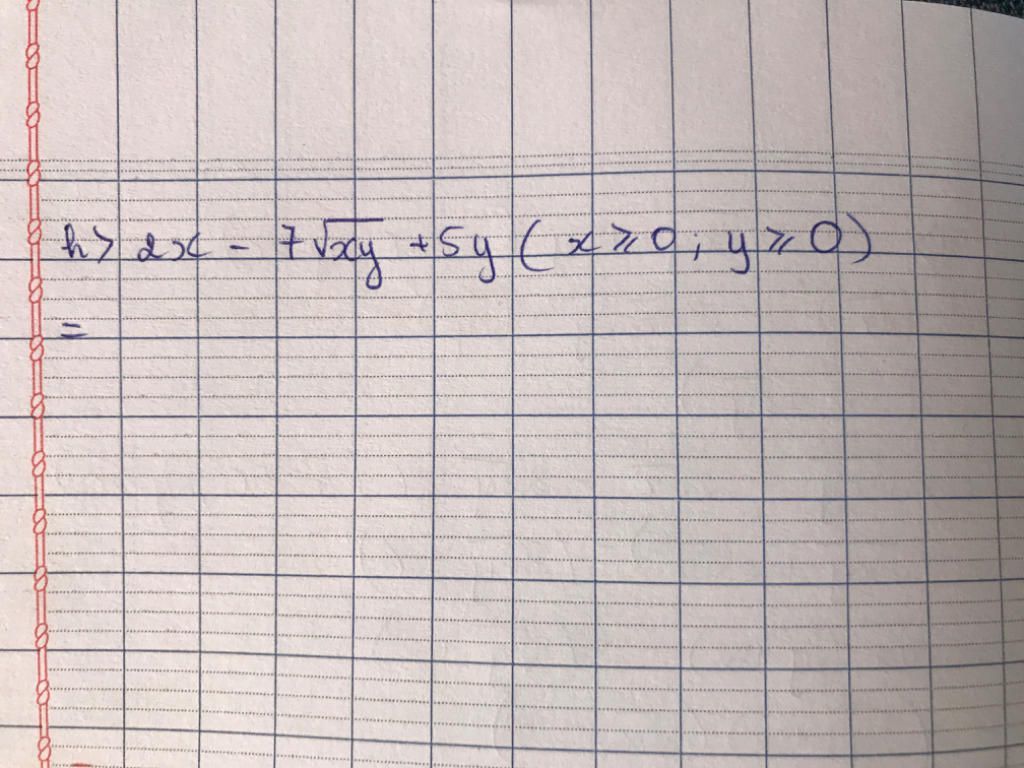 h> 2x - 7√xy + 5y ( x ⩾ 0 ; y ⩾ 0 )
=